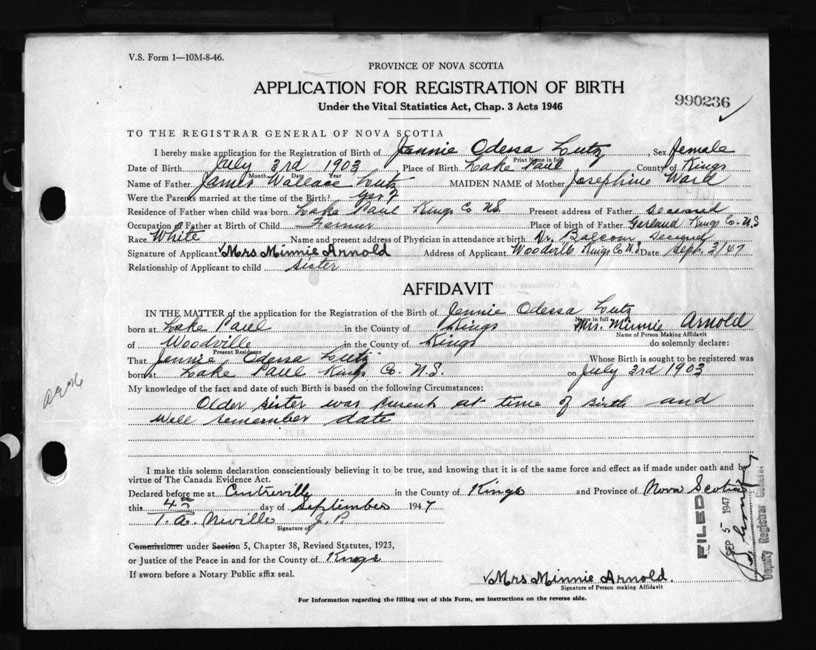 V.S. Form 1—10M-8-46.
PROVINCE OF NOVA SCOTIA
APPLICATION FOR REGISTRATION OF BIRTH
Under the Vital Statistics Act, Chap. 3 Acts 1946
990236
TO THE REGISTRAR GENERAL OF NOVA SCOTIA
I hereby make application for the Registration of Birth of Jennie Odessa Lutz, Sex Female
Print Name in full
Date of Birth July 3rd 1903 Place of Birth Lake Paul County of Kings
Month Date Year
Name of Father James Wallace Lutz MAIDEN NAME of Mother Josephine Ward
Were the Parents married at the time of the Birth? Yes
Residence of Father when child was born Lake Paul Kings Co N.S. Present address of Father deceased
Occupation of Father at Birth of Child Farmer Place of birth of Father Garland Kings Co. N.S
Race White Name and present address of Physician in attendance at birth Dr. Balcom
Signature of Applicant Mrs Minnie Arnold Address of Applicant Woodville Kings Co N.S Date Sept. 3/47
Relationship of Applicant to child sister
AFFIDAVIT
IN THE MATTER of the application for the Registration of the Birth of Jennie Odessa Lutz
Name in full
born at Lake Paul in the County of Kings Mrs. Minnie Arnold
Name of Person Making Affidavit
of Woodville in the County of Kings do solemnly declare:
Present Residence
That Jennie Odessa Lutz Whose Birth is sought to be registered was
born at Lake Paul Kings Co. N.S. on July 3rd 1903
My knowledge of the fact and date of such Birth is based on the following Circumstances:
Older sister was present at time of birth and
well remember date
I make this solemn declaration conscientiously believing it to be true, and knowing that it is of the same force and effect as if made under oath and by
virtue of The Canada Evidence Act.
Declared before me at Centreville in the County of Kings and Province of Nova Scotia
this 4th day of September 1947
T. A. Neville J.P.
Signature of
Commissioner under Section 5, Chapter 38, Revised Statutes, 1923,
or Justice of the Peace in and for the County of Kings
If sworn before a Notary Public affix seal.
Mrs Minnie Arnold.
Signature of Person making Affidavit
For Information regarding the filling out of this Form, see instructions on the reverse side.
FILED
SEP 5 1947
Deputy Registrar General